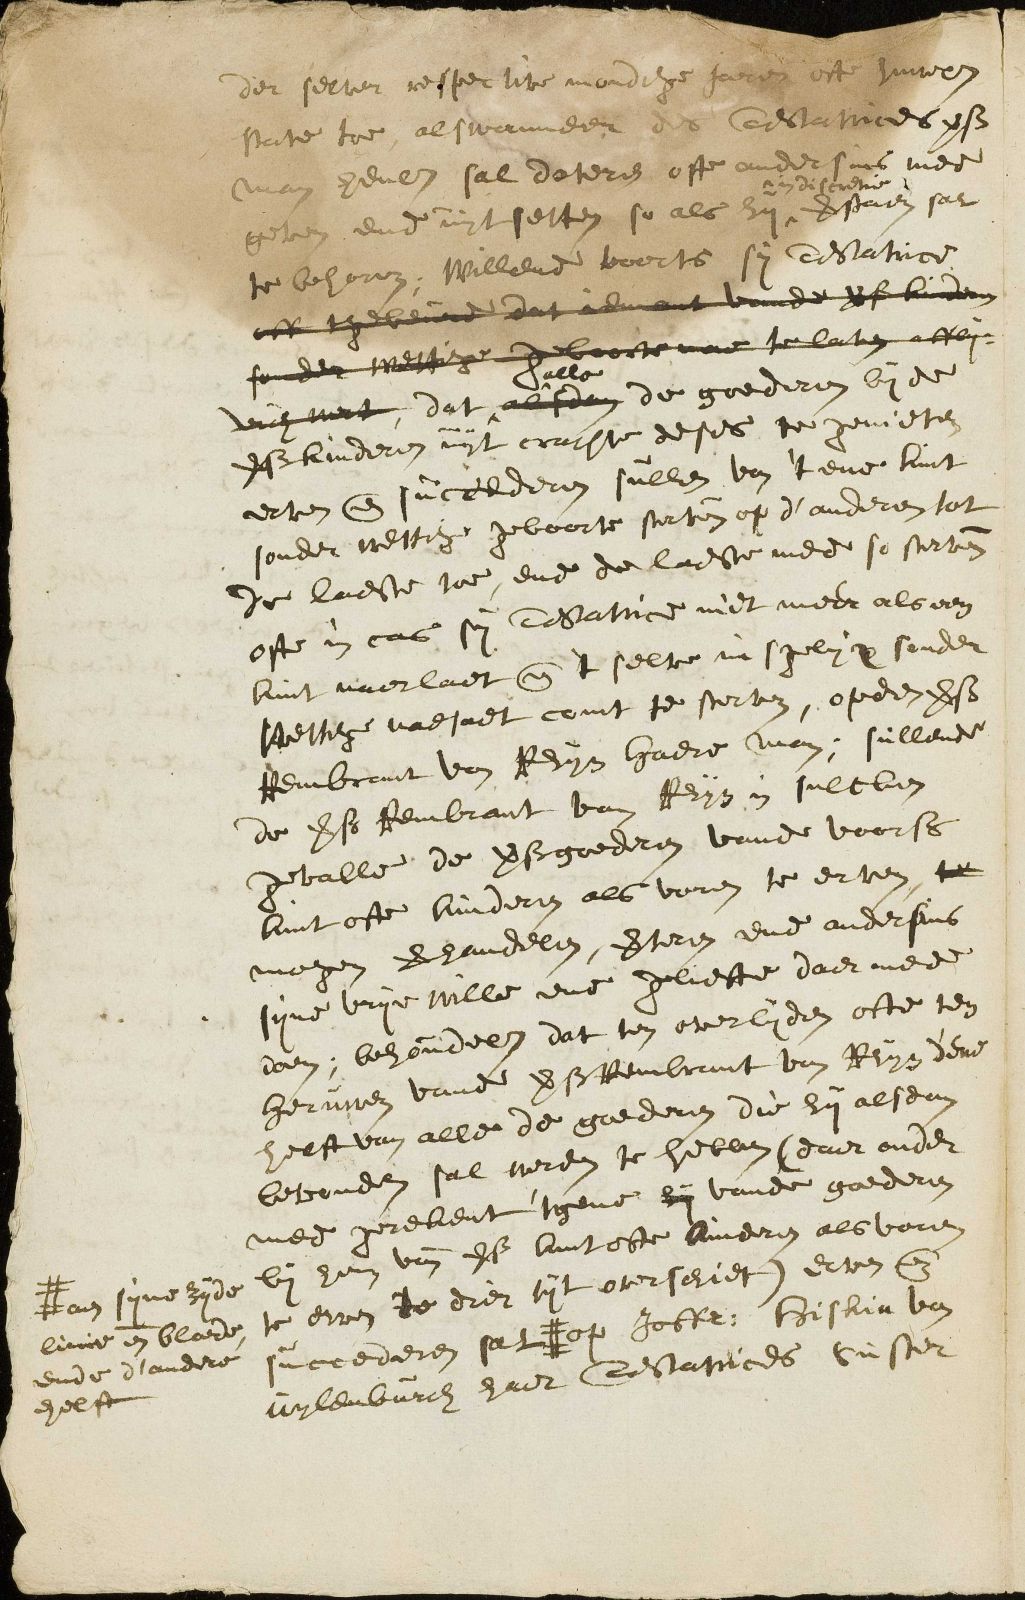 der selver respective mondige jaren ofte huwelycx
state toe, alswanneer des Testatrices vs
man henl. sal doteren ofte andersins mede
geven ende uytsetten so als hy ^in discretie verstaen sal
te behoren, Willende voorts sy Testatrice
off 't gebeurde dat iemant vande vs. kinderen
sonder wettige geboorte nae te laten afflij-
vich wert, dat alsdan ^alle de goederen by de
vs kinderen uyt crachte deses te genieten
erven en succederen sullen van 't ene kint
sonder wettige geboorte sterven op d'anderen tot
de laeste toe, ende de laeste mede so sterven
ofte in cas sy Testatrice niet meer als een
kint naerlaet en 't selve insgelycx sonder
wettige naesaet comt te sterven, opden vs
Rembrant van Rhyn haere man, sullende
de vs Rembrant van Rhyn in sulcken
gevalle de vs goederen vande voors
kint ofte kinderen als voren te erven, te
mogen verhandelen, verteren ende andersins
syne vrye wille ende geliefte daermede
doen, behoudel. dat ten overlyden ofte ten
heruwen vande vs Rembrant van Rhyn d'ene
helft van alle de goederen die hy alsdan
bevonden sal werden te hebben (daer onder
mede gerekent 'tgene hy vande goederen
by hem van vs kint ofte kinderen als voren
te erven te dier tyt overschiet) erven en
succederen sal # op Joffr: Hiskia van
Uylenburch haer Testatrices suster
# aen syne zyde
linie en bloede,
ende d'andere
helft